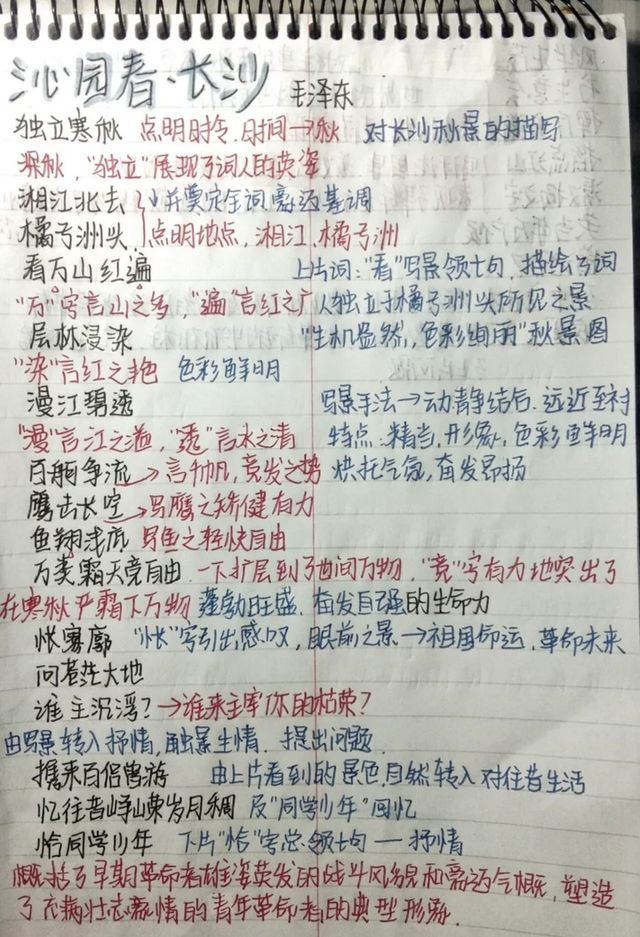 沁园春·长沙 毛泽东
独立寒秋 点明时令.时间→秋 对长沙秋景的描写
深秋，"独立"展现了词人的英姿
湘江北去 并奠定全词豪迈基调
橘子洲头 点明地点，湘江，橘子洲
看万山红遍 上片词："看"写景领七句，描绘了词
"万"字言山之多，"遍"言红之广 人独立于橘子洲头所见之景
层林浸染 "生机盎然，色彩绚丽"秋景图
"染"言红之艳 色彩鲜明
漫江碧透 写景手法→动静结合.远近至衬
"漫"言江之溢，"透"言水之清 特点：精当，形象，色彩鲜明
百舸争流→言千帆，竞发之势 烘托气氛，奋发昂扬
鹰击长空→写鹰之矫健有力
鱼翔浅底 写鱼之轻快自由
万类霜天竞自由.一下扩展到了世间万物，"竞"字有力地突出了
在寒秋严霜下万物 蓬勃旺盛.奋发自强的生命力
怅寥廓 "怅"字引出感叹，眼前之景→祖国命运，革命未来
问苍茫大地
谁主沉浮？→谁来主宰你的枯荣？
由写景转入抒情，触景生情.提出问题.
携来百侣曾游 由上片看到的景色，自然转入对往昔生活
忆往昔峥嵘岁月稠 及"同学少年"回忆
恰同学少年 下片"恰"字总领七句—抒情
概括了早期革命者雄姿英发的战斗风貌和豪迈气概，塑造
了 壮志豪情的青年革命者的典型形象.